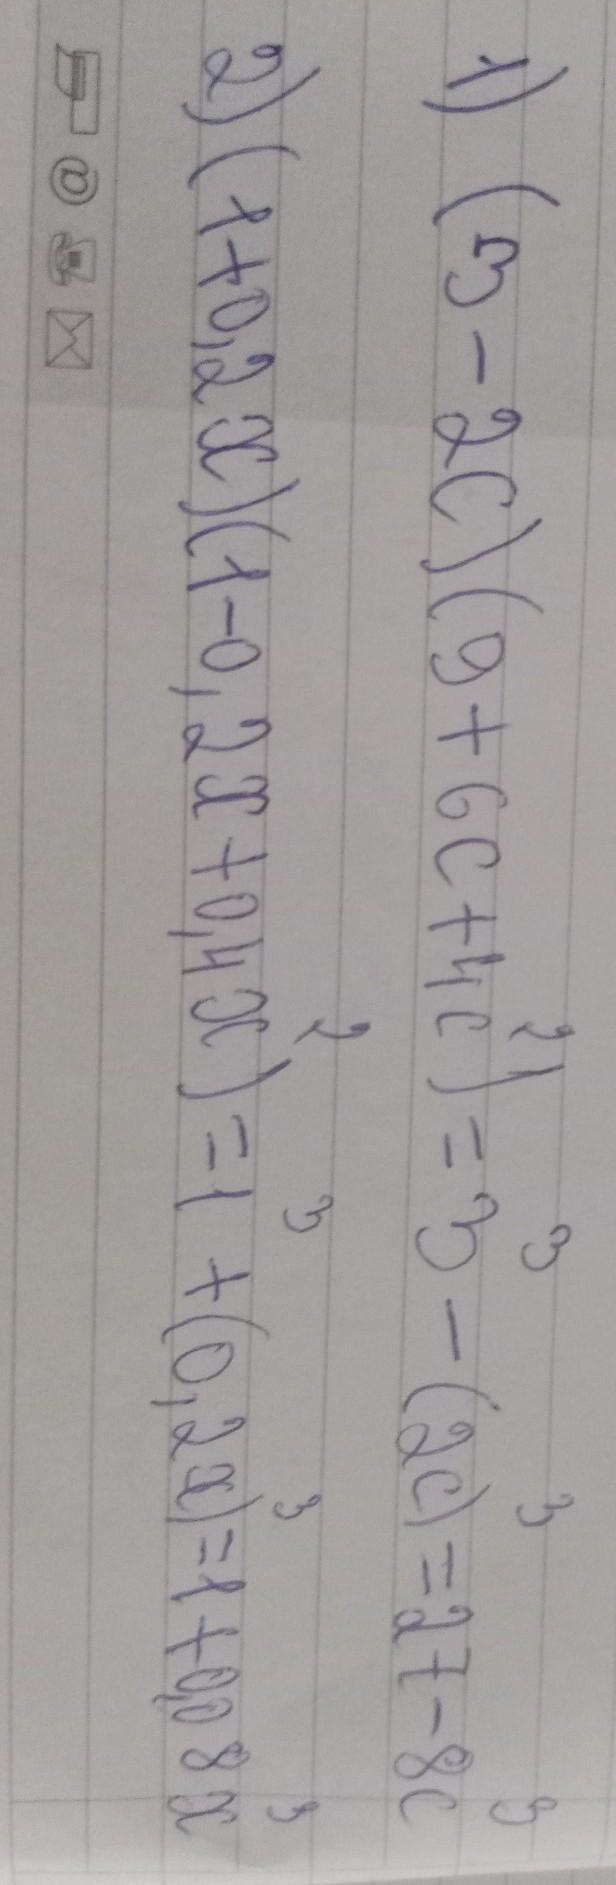 1) (3-2c)(9+6c+4c²)=3³-(2c)³=27-8c³
2) (1+0,2x)(1-0,2x+0,4x²)=1³+(0,2x)³=1+0,08x³